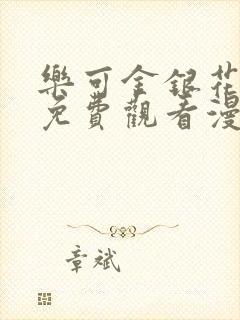 樂可金銀花
免費觀看漫
章斌